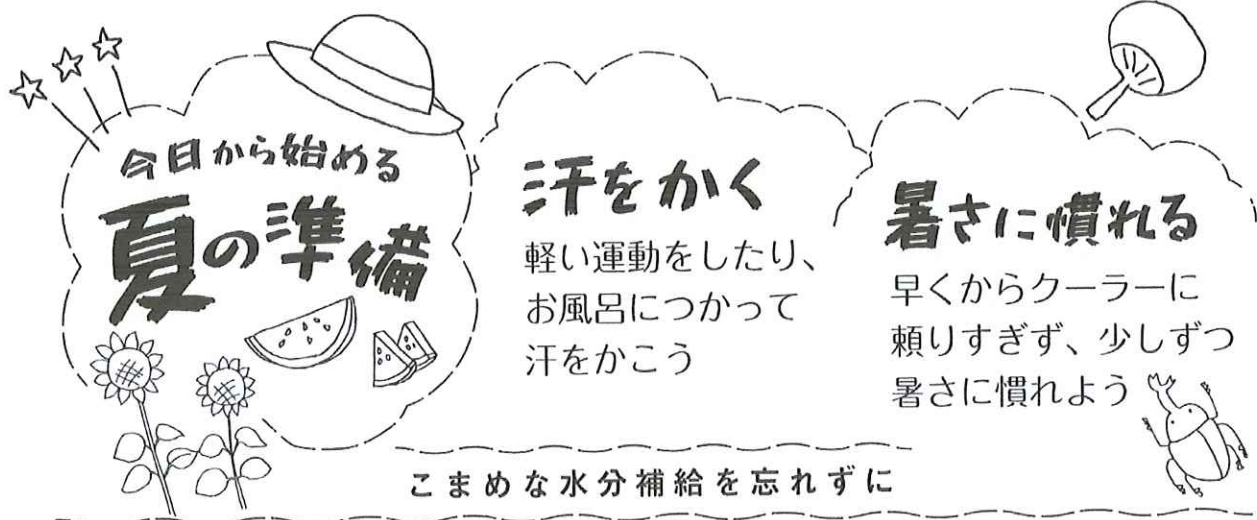 今日から始める
夏の準備
汗をかく
軽い運動をしたり、
お風呂につかって
汗をかこう
暑さに慣れる
早くからクーラーに
頼りすぎず、少しずつ
暑さに慣れよう
こまめな水分補給を忘れずに